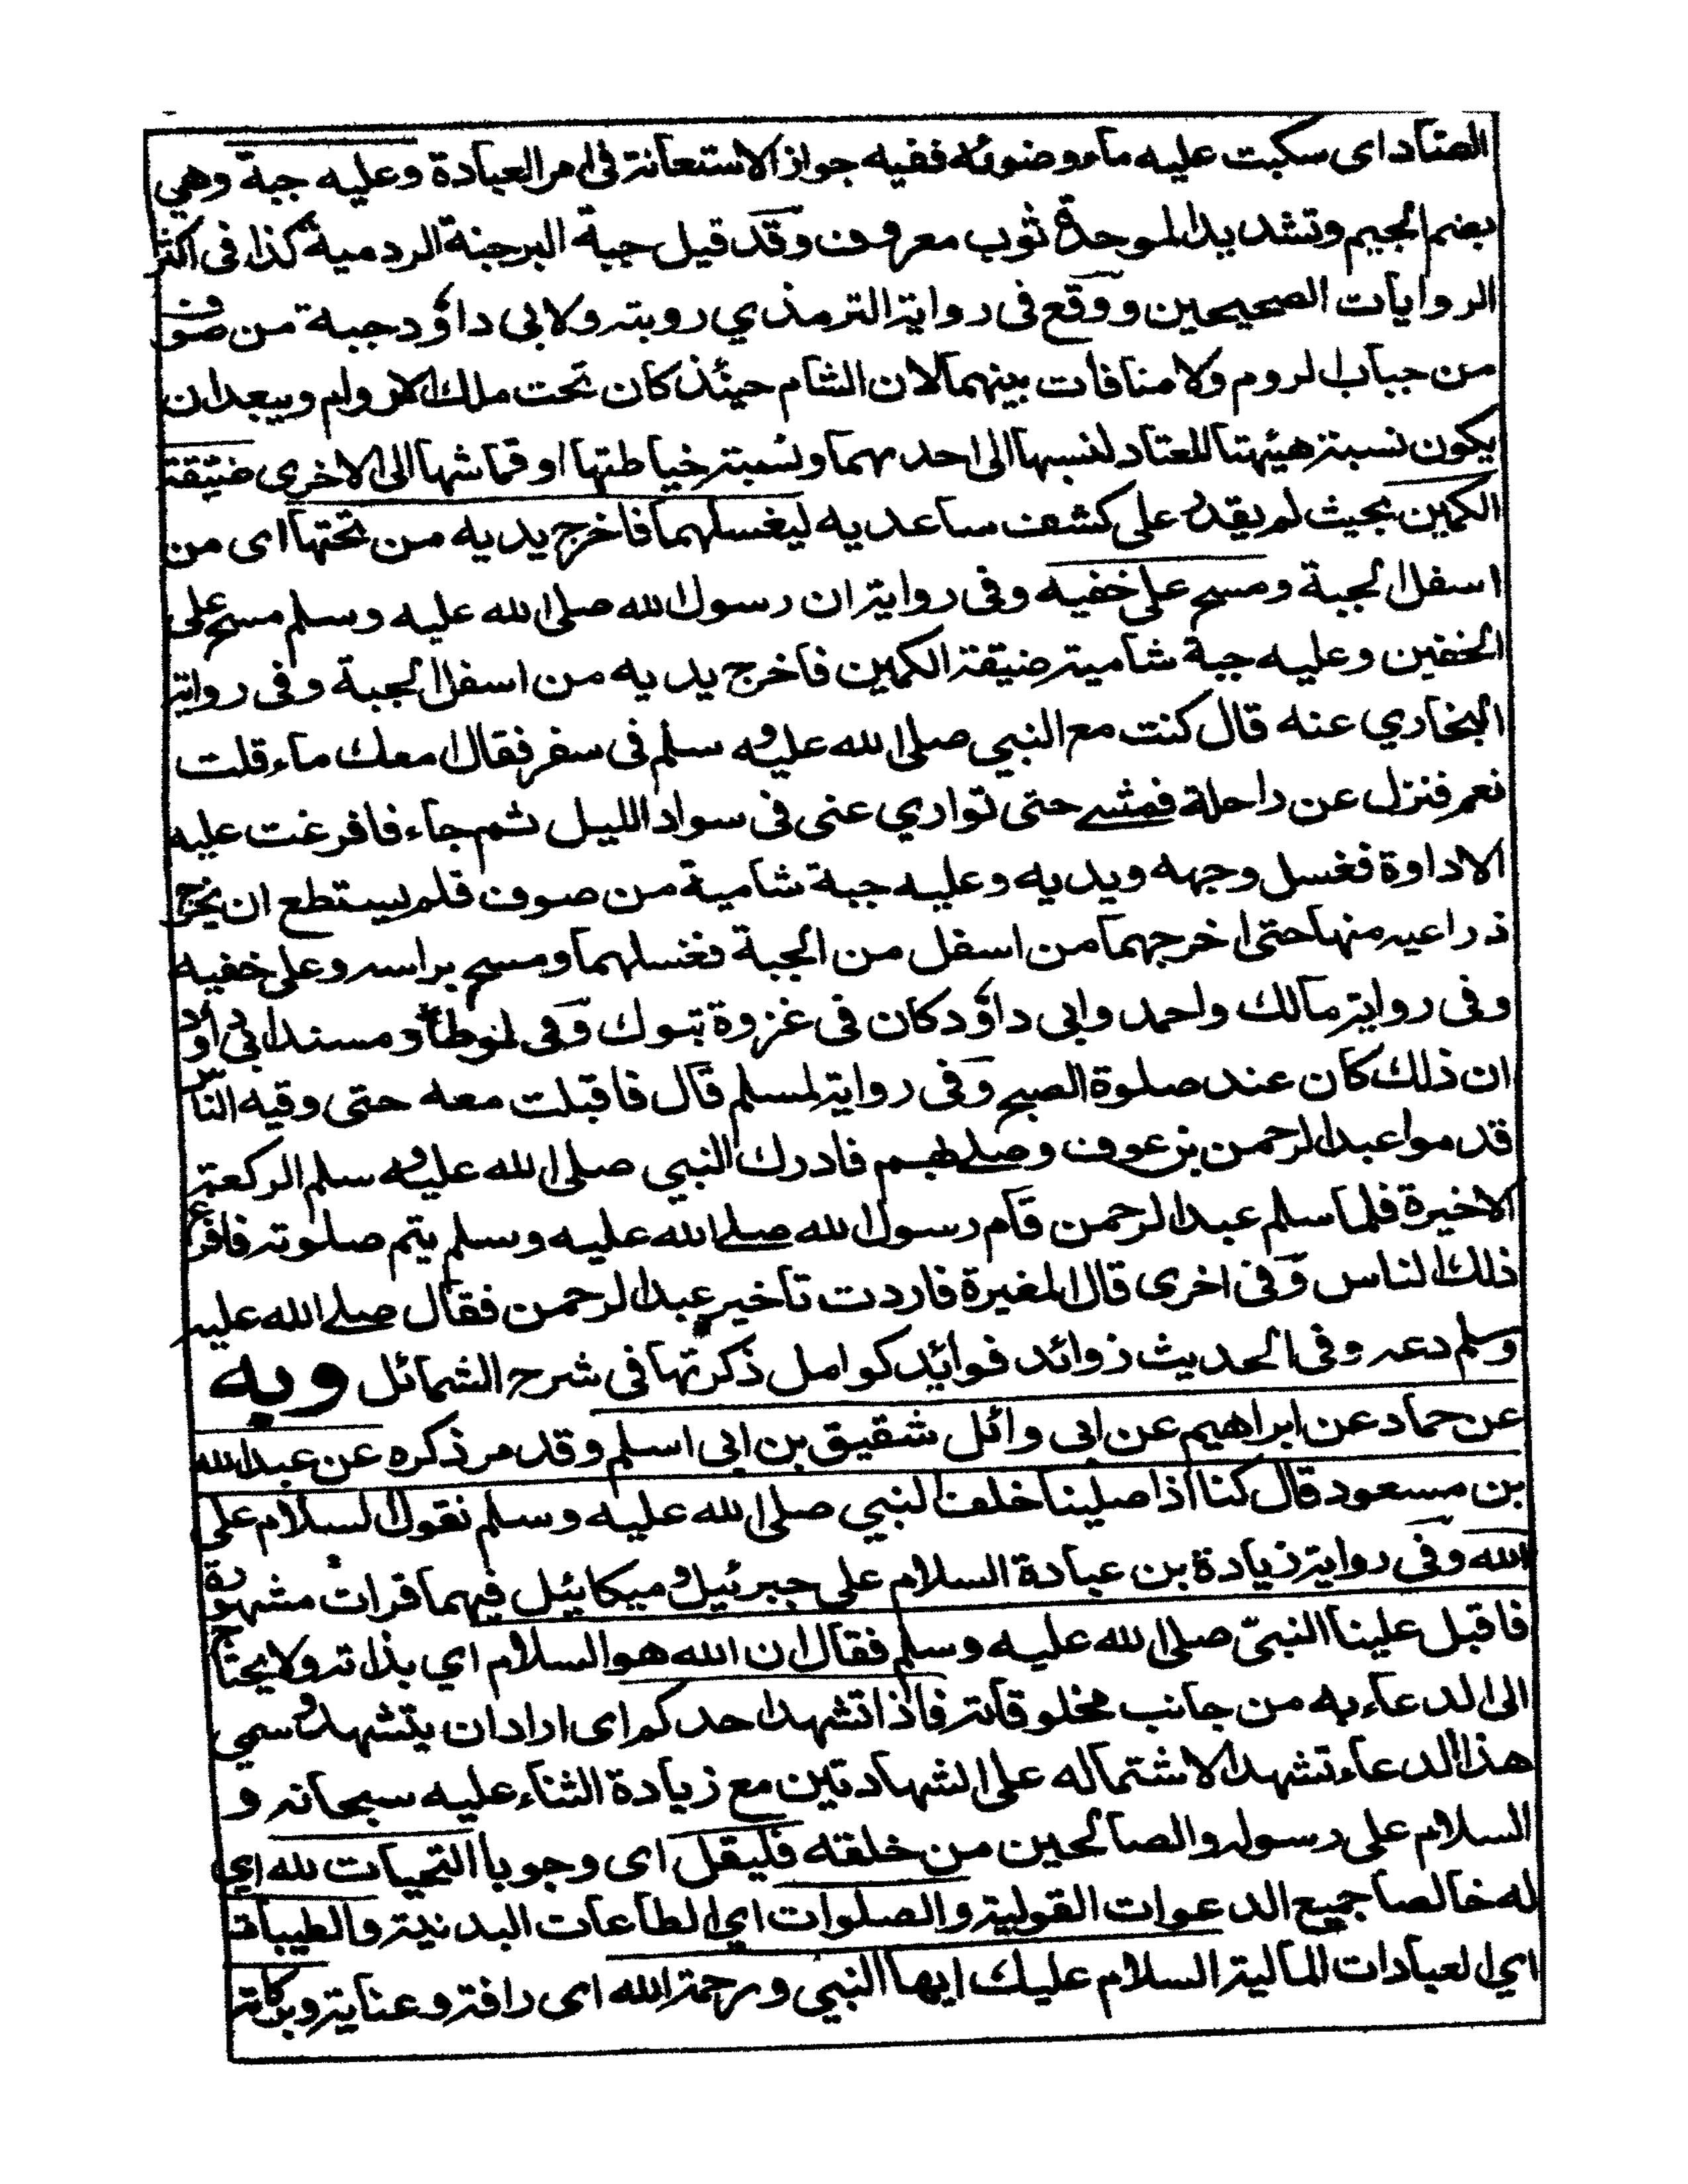 الصاد اى سكبت عليه ماء وضوئه ففيه جواز الاستعانة فى امر العبادة وعليه جبة وهي
بضم الجيم وتشديد الموحدة ثوب معروف وقد قيل جبة البرجنة الردمية كذا فى اكثر
الروايات الصحيحين ووقع فى رواية الترمذي روبته ولابى داؤد جبة من صوف
من جباب الروم ولا منافات بينهما لان الشام حينئذ كان تحت ملك الاروام ويبعد ان
يكون نسبة هيئهتا للعتاد لنسبها الى احدهما ونسبة خياطتها او قماشها الى الاخرى ضيقة
الكمين بحيث لم يقدر على كشف ساعديه ليغسلهما فاخرج يديه من تحتها اى من
اسفل الجبة ومسح على خفيه وفى رواية ان رسول الله صلى الله عليه وسلم مسح على
الخفين وعليه جبة شامية ضيقة الكمين فاخرج يديه من اسفل الجبة وفى رواية
البخاري عنه قال كنت مع النبي صلى الله عليه وسلم فى سفر فقال امعك ماء قلت
نعم فنزل عن راحلة فمشے حتى توارى عنى فى سواد الليل ثم جاء فافرغت عليه
الاداوة فغسل وجهه ويديه وعليه جبة شامية من صوف فلم يستطع ان يخرج
ذراعيه منها حتى اخرجهما من اسفل من الجبة فغسلهما ومسح براسه وعلى خفيه
وفى رواية مالك واحمد وابى داؤد كان فى غزوة تبوك وفى لموطأ ومسند ابى داؤد
ان ذلك كان عند صلوة الصبح وفى رواية لمسلم قال فاقبلت معه حتى وقيه الناس
قدموا عبد الرحمن بن عوف وصلے بهم فادرك النبي صلى الله عليه وسلم الركعة
الاخيرة فلما سلم عبد الرحمن قام رسول الله صلے الله عليه وسلم يتم صلوته فافزع
ذلك الناس وفى اخرى قال المغيرة فاردت تاخير عبد الرحمن فقال صلے الله عليه
وسلم دعه وفى الحديث زوائد فوائد كوامل ذكرتها فى شرح الشمائل وبه
عن حماد عن ابراهيم عن ابى وائل شقيق بن ابى اسلم وقد مر ذكره عن عبد الله
بن مسعود قال كنا اذا صلينا خلف النبي صلى الله عليه وسلم نقول السلام على
الله وفى رواية زيادة بن عبادة السلام على جبرئيل وميكائيل فيهما قرات مشهورة
فاقبل علينا النبىّ صلى الله عليه وسلم فقال ان الله هو السلام اي بذاته ولا يحتاج
الى الدعاء به من جانب مخلوقاته فاذا تشهد احدكم اى اراد ان يتشهد وسمي
هذا الدعاء تشهدا لاشتماله على الشهادتين مع زيادة الثناء عليه سبحانه و
السلام على رسوله والصالحين من خلقه فليقل اى وجوبا التحيات لله اي
له خالصا جميع الدعوات القولية والصلوات اي الطاعات البدنية والطيبات
اي العبادات المالية السلام عليك ايها النبي ورحمة الله اى رافة وعناية وبركاته